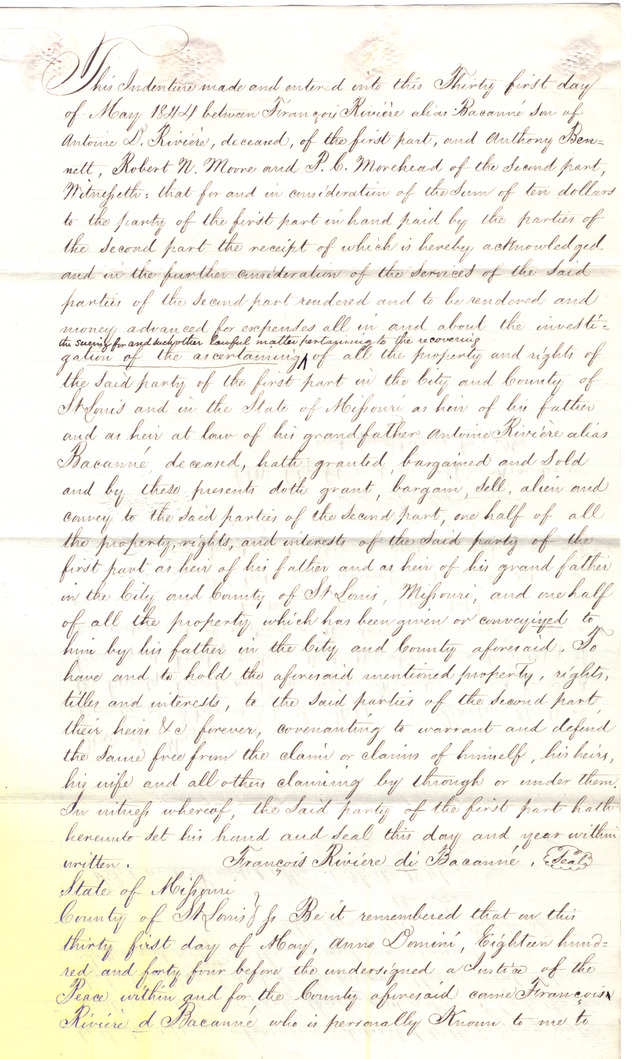 This Indenture made and entered into this Thirty first day
of May 1844 between François Rivière alias Bacanné son of
Antoine D. Rivière, deceased, of the first part, and Anthony Ben=
nett, Robert N. Moore and P. C. Morehead of the Second part,
Witnesseth: that for and in consideration of the sum of ten dollars
to the party of the first part in hand paid by the parties of
the second part the receipt of which is hereby acknowledged
and in the further consideration of the services of the said
parties of the second part rendered and to be rendered and
money advanced for expenses all in and about the investi=
the sueing for and such other lawful matter pertaining to the recovering
gation of the ascertaining ^ of all the property and rights of
the said party of the first part in the City and County of
St Louis and in the State of Missouri as heir of his father
and as heir at law of his grandfather Antoine Rivière alias
Bacanné, deceased, hath granted, bargained and sold
and by these presents doth grant, bargain, sell, alien and
convey to the said parties of the second part, one half of all
the property, rights, and interests of the said party of the
first part as heir of his father and as heir of his grand father
in the City and County of St Louis, Missouri, and one half
of all the property which has been given or conveyiyed to
him by his father in the City and County aforesaid. To
have and to hold the aforesaid mentioned property, rights,
titles and interests, to the said parties of the second part
their heirs &c forever, covenanting to warrant and defend
the same free from the claim or claims of himself, his heirs,
his wife and all others claiming by through or under them.
In witness whereof, the said party of the first part hath
hereunto set his hand and seal this day and year within
written. François Rivière di Bacanné. Seal
State of Missouri
County of St Louis } ss Be it remembered that on this
thirty first day of May, Anno Domini, Eighteen hund=
red and forty four before the undersigned a Justice of the
Peace within and for the County aforesaid came François
Rivière d Bacanné who is personally Known to me to